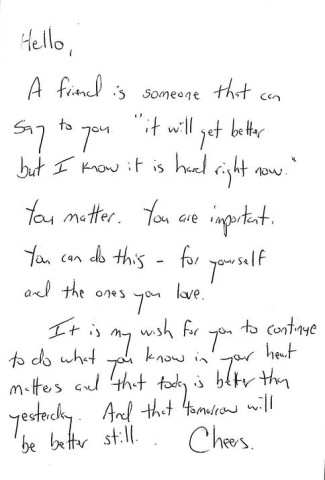 Hello,
A friend is someone that can
say to you "it will get better
but I know it is hard right now."
You matter. You are important.
You can do this - for yourself
and the ones you love.
It is my wish for you to continue
to do what you know in your heart
matters and that today is better than
yesterday. And that tomorrow will
be better still. Cheers.